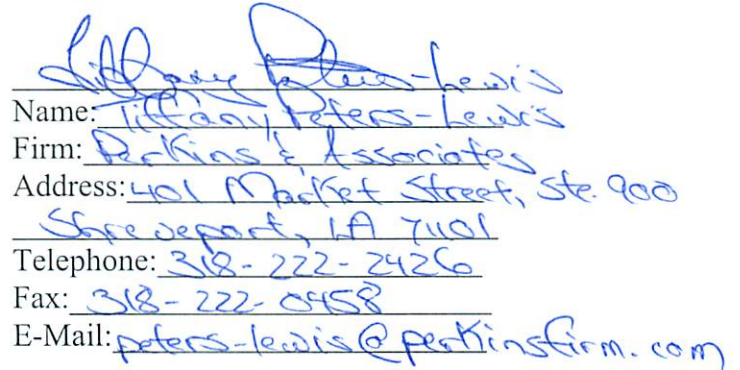 Tiffany Peters-Lewis
Name: Tiffany Peters-Lewis
Firm: Perkins & Associates
Address: 401 Market Street, Ste. 900
Shreveport, LA 71101
Telephone: 318-222-2426
Fax: 318-222-0458
E-Mail: peters-lewis@perkinsfirm.com